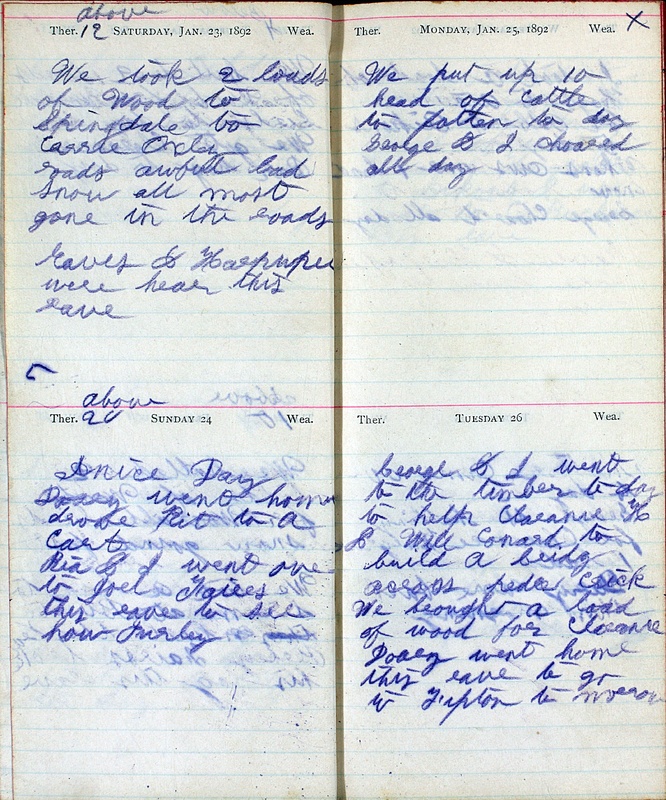 above
Ther. 12 SATURDAY, JAN. 23, 1892 Wea.
We took 2 loads
of Wood to
Springdale to
Carrie
roads awful bad
Snow all most
gone in the roads
Eaves &
were hear this
eave
above
Ther. 20 SUNDAY 24 Wea.
A nice Day
Doxey went home
drove Kit to A
Cart
Ria & I went over
to Joel
this eave to see
how Furley
Ther. MONDAY, JAN. 25, 1892 Wea. X
We put up 10
head of cattle
to fatten to day
George & I choared
all day
Ther. TUESDAY 26 Wea.
George & I went
to the timber to day
to help Clearnce H
& Will Conard to
build A bridg
across peder crick
We brought A load
of wood for Clearnce
Doxey went home
this eave to go
to Tipton to morrow